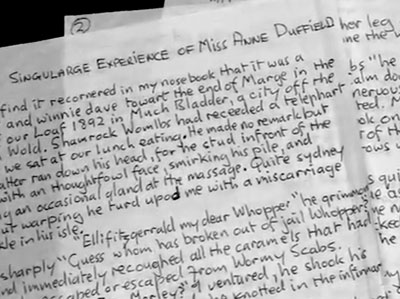 ②
SINGULARGE EXPERIENCE OF MISS ANNE DUFFIELD
find it recornered in my nosebook that it was a
and winnie dave towart the end of Marge in the
our Loaf 1892 in Much Bladder, a city off the
Wold. Shamrock Wombs had receeded a telephart
we sat at our lunch eating. He made no remark but
atter ran down his head, for the stud infront of the
with an thoughtfowl face, smirking his pile, and
ng an occasional gland at the massage. Quite sydney
ut warping he turd upod me with a miscarriage
le in his isle.
"Ellifitzgerrald my dear Whopper" he grimmond
sharply "Guess whom has broken out of jail Whopper
nd immediately recoughed all the caramels that had
caped or escaped from Wormy Scabs.
Morley?" I ventured, he shook his
he knotted in the infirmar
hor leg
me the
bs "he
alm do
nervous
ted. M
ok on
r of th
ows
s qui
he a